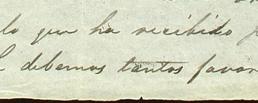 lo que ha recibido
debemos tantos favor